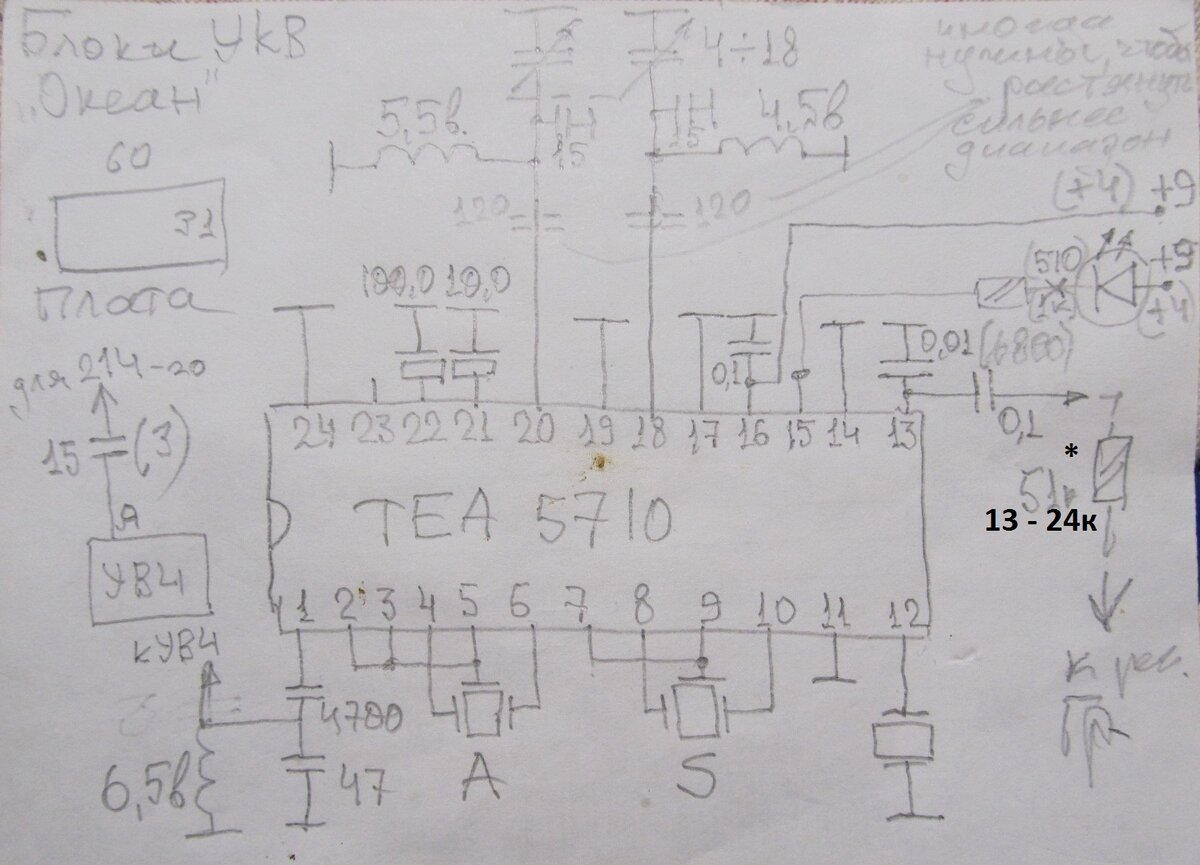 Блоки УКВ
"Океан"
60
31
Плата
4÷18
5,5в.
4,5в
15
15
120
120
иногда
нужны, чтобы
растянуть
сильнее
диапазон
(+4) +9
(510)
(1к)
+9
(+4)
100,0 10,0
0,1
0,01 (6800)
0,1
для 214-20
15 (3)
Я
УВЧ
24 23 22 21 20 19 18 17 16 15 14 13
TEA 5710
*
51к
13 - 24к
1 2 3 4 5 6 7 8 9 10 11 12
к УВЧ
4700
47
6,5в
A
S
к рег.
Гр.